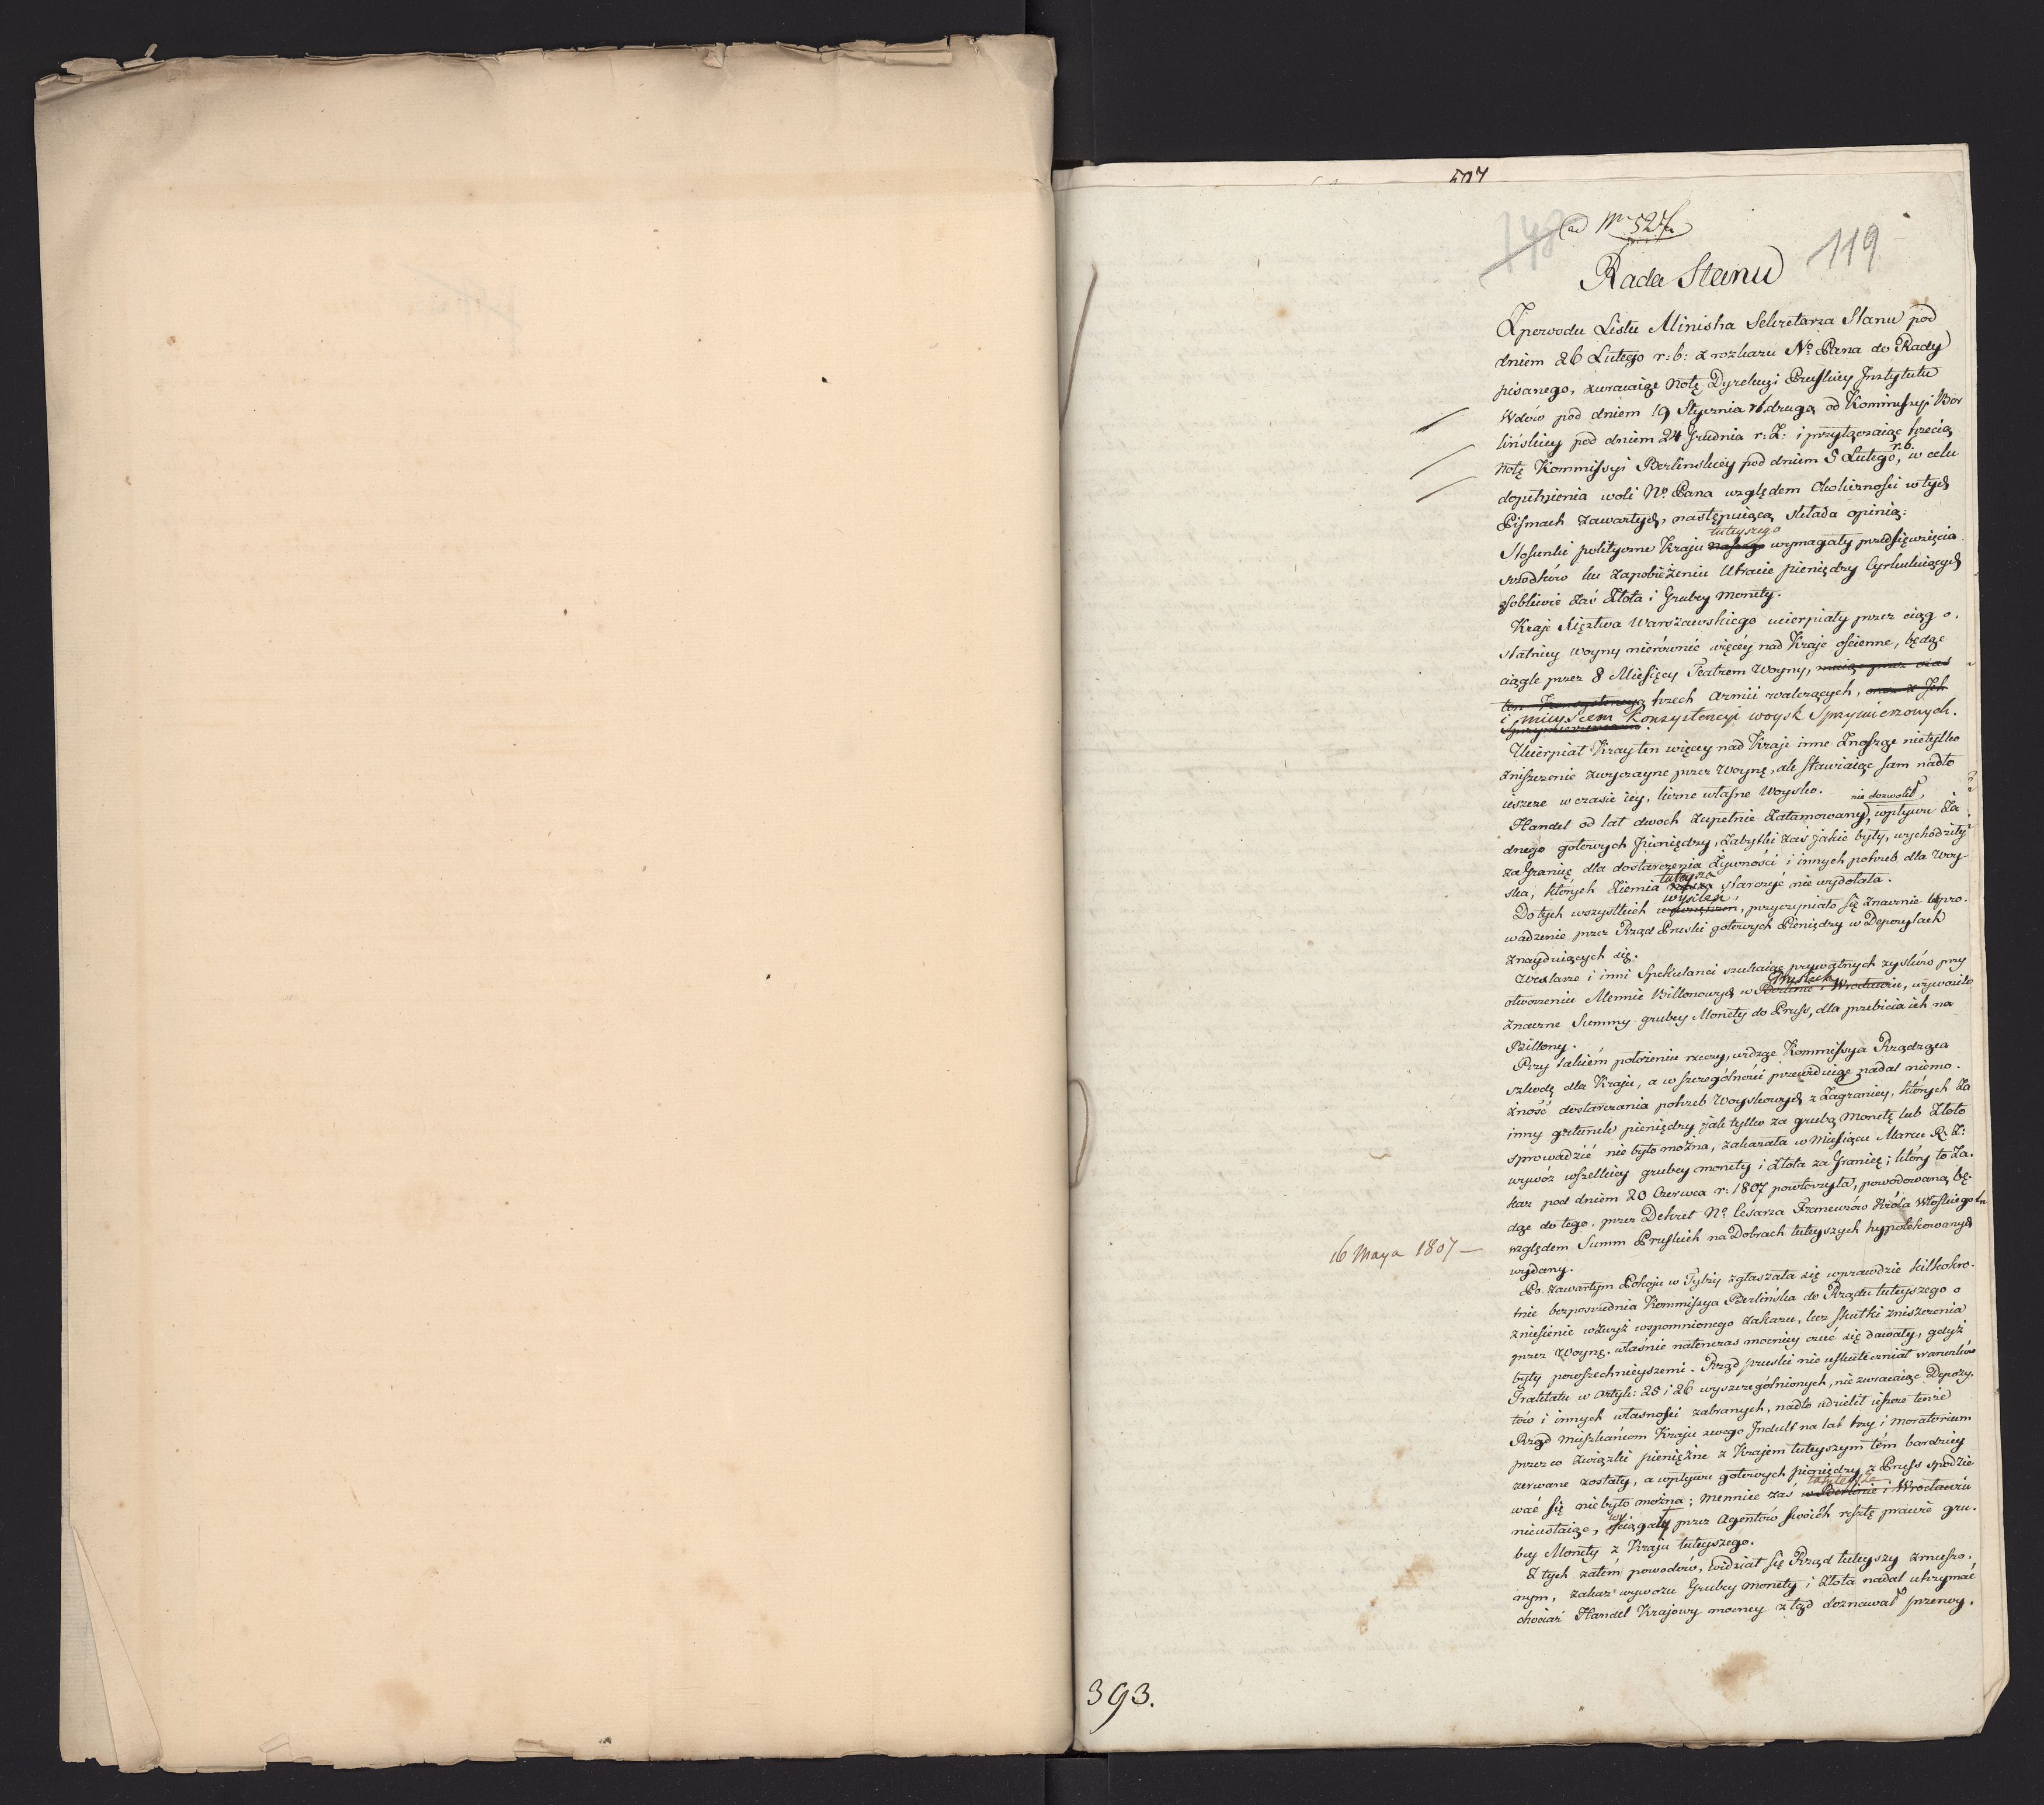 507
148 ad Nr 527 119
Rada Stanu
Zpowodu Listu Ministra Sekretarza Stanu pod
dniem 26 Lutego r: b: z rozkazu No Pana do Rady
pisanego, zwracaiąc Notę Dyrekcyi Pruskiey Instytutu
Wdów pod dniem 19 Stycznia rb. drugą od Kommissyi Ber
lińskiey pod dniem 24 Grudnia r: Z: i przyłączaiąc trzecią
Notę Kommissyi Berlinskiey pod dniem 5 Lutego r.b., w celu
dopełnienia woli No Pana względem Okoliczności w tych
Pismach zawartych, następuiącą składa opinią:
Stosunki polityczne Kraju tuteyszego wymagały przedsięwzięcia
srzodków ku zapobieżeniu Utracie pieniędzy Cyrkuluiących
osobliwie zaś Złota i Grubey Monety.
Kraje Xięztwa Warszawskiego ucierpiały przez ciąg o.
statniey woyny nierównie więcéy nad Kraje ościenne, będąc
ciągle przez 8 Miesięcy Teatrem Woyny, maiąc przez czas
ten Konsystencyą trzech Armii walczących, oraz z Ich
i mieyscem Konzystencyi woysk Sprzymierzonych.
Sprzymierzeńcami.
Ucierpiał Kray ten więcey nad Kraje inne Znosząc nietylko
zniszczenie zwyczayne przez Woynę, ale stawiaiąc sam nadto
ieszcze w czasie iéy, liczne własne Woysko.
Handel od lat dwoch zupełnie Zatamowany, nie dozwolił, wpływu Ża
dnego gotowych pieniędzy, Zabytki zaś jakie były, wychodziły
za Granicę dla dostarczenia Żywności i innych potrzeb dla Woy-
ska, których Ziemia tuteysza starczyć nie wydołała.
Do tych wszystkich wysileń, przyczyniało się znacznie Upro.
wadzenie przez Rząd Pruski gotowych Pieniędzy w Depozytach
znayduiących się.
Wexlarze i inni Spekulanci szukaiąc prywatnych zysków przy
otworzeniu Mennic Billonowych w Prusiech Berlinie i Wrocławiu, wywozili
znaczne Summy grubey Monety do Pruss, dla przebicia ich na
Billony.
Przy takiém położeniu rzeczy, widząc Kommissya Rządząca
szkodę dla Kraju, a w szczególności przewiduiąc nadal niemo.
żność dostarczania potrzeb Woyskowych z Zagranicy, których Za
inny gatunek pieniędzy jak tylko za grubą Monetę lub Złoto
sprowadzić nie było można, zakazała w Miesiącu Marcu R. Z:
wywóz wszelkiey grubey monety i Złota za Granicę; który to Za.
kaz pod dniem 20 Czerwca r: 1807 powtorzyła, powodowaną bę.
dąc do tego, przez Dekret No Cesarza Francuzów Króla Włoskiego
16 Maya 1807 —
względem Summ Pruskich na Dobrach tuteyszych hypotekowanych
wydany.
Po zawartym Pokoju w Tylży zgłaszała się wprawdzie kilkokro.
tnie bezposrednia Kommissya Berlińska do Rządu tuteyszego o
zniesienie wzwyż wspomnionego zakazu, lecz skutki zniszczenia
przez Woynę, właśnie natenczas mocniey czuć się dawały, gdyż
były powszechnieyszemi. Rząd pruski nie uskuteczniał warunków
Traktatu w Artyk: 25 i 26 wyszczególnionych, nie zwracaiąc Depozy.
tów i innych własności zabranych, nadto udzielił ieszcze tenże
Rząd Mieszkańcom Kraju swego Indult na lat trzy i moratorium
przez co związki pieniężne z Krajem tuteyszym tém bardziey
zerwane zostały, a wpływu gotowych pieniędzy z Pruss spodzie
wać się niebyło można; mennice zaś tamteysze w Berlinie i Wrocławiu
nieustaiąc, wyciągały przez Agentów swoich resztę prawie gru.
bey Monety z Kraju tuteyszego.
Z tych zatém powodów, widział się Rząd tuteyszy zmuszo.
nym, zakaz wywozu Grubey Monety i Złota nadal utrzymać
chociaż Handel Krajowy mocney ztąd doznawał przerwy.
393.